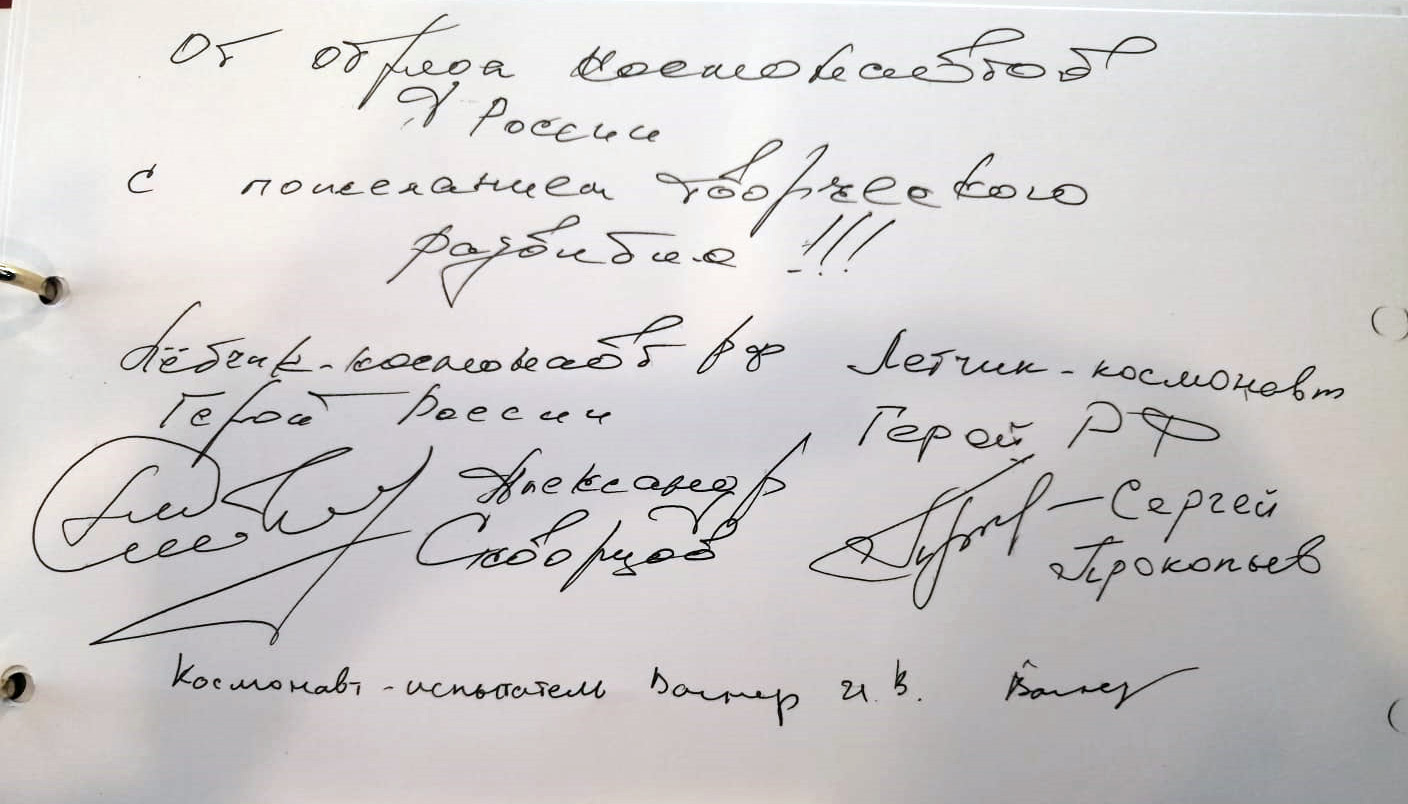 От отряда космонавтов
России
с пожеланием творческого
развития !!!
Лётчик-космонавт РФ
Герой России
Александр
Скворцов
Летчик-космонавт
Герой РФ
Сергей
Прокопьев
Космонавт-испытатель Вагнер И.В.